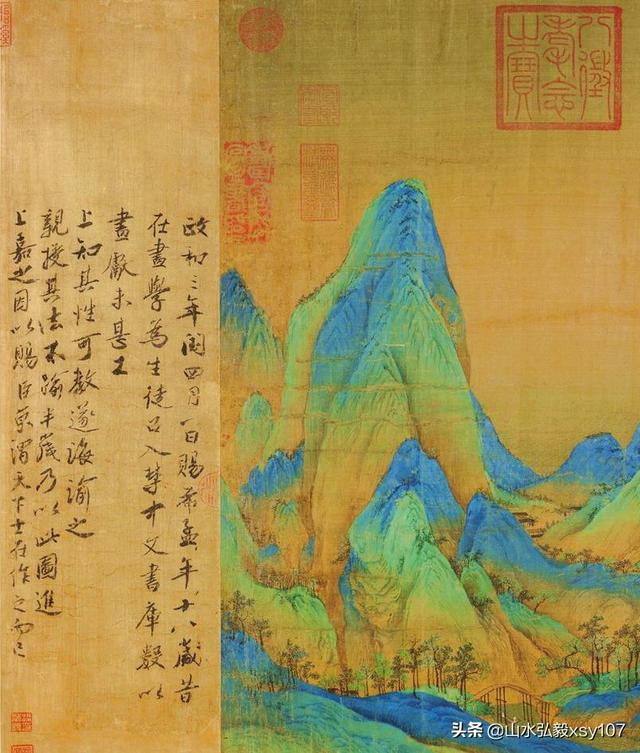 八徵
耄念
之寶
政和三年閏四月一日賜希孟年十八歲昔
在畫學為生徒召入禁中文書庫數以
畫獻未甚工
上知其性可教遂誨諭之
親授其法不踰半歲乃以此圖進
上嘉之因以賜臣京謂天下士在作之而已
头条 @山水弘毅xsy107